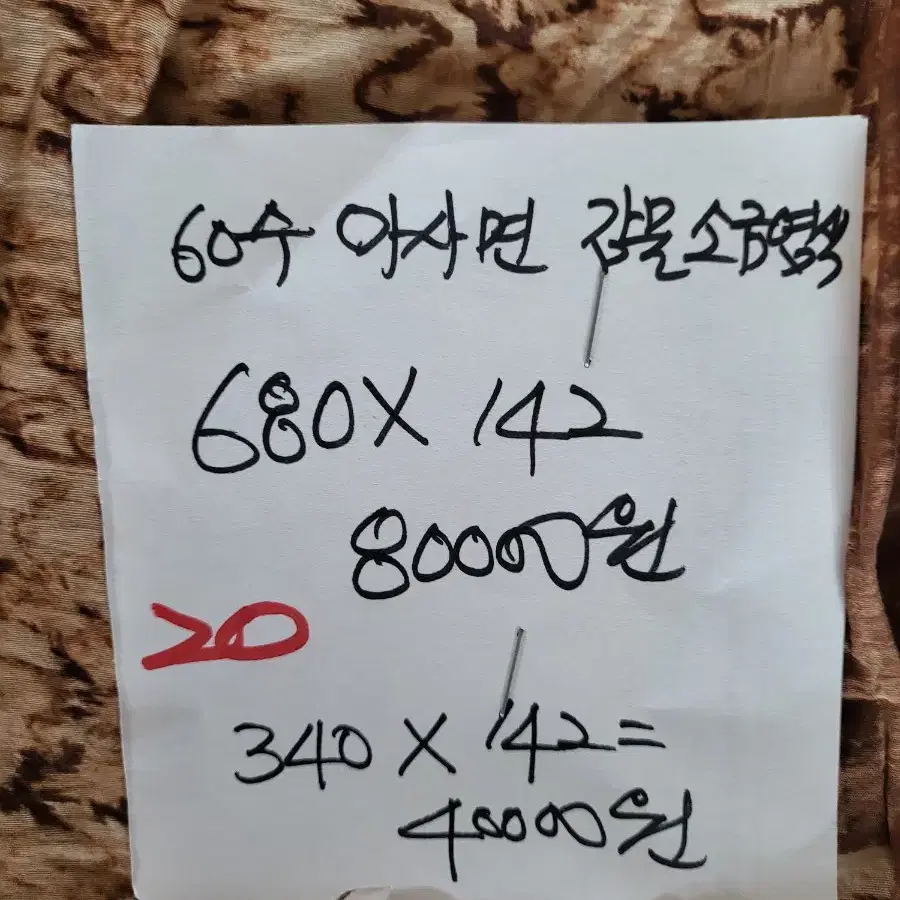 60수 아사면 감물소금염색
680X 142
80000원
20
340 X 142=
40000원